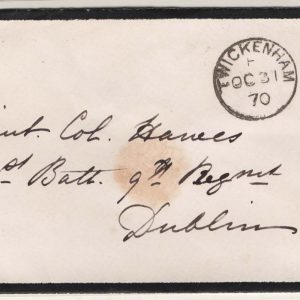 TWICKENHAM
F
OC 31
70
eut. Col. Hawes
st Batt. 9th Regmt
Dublin